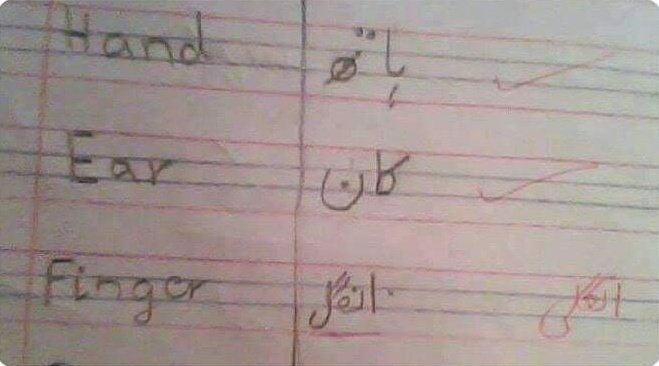 Hand ہاتھ
Ear کان
Finger انگل انگلی